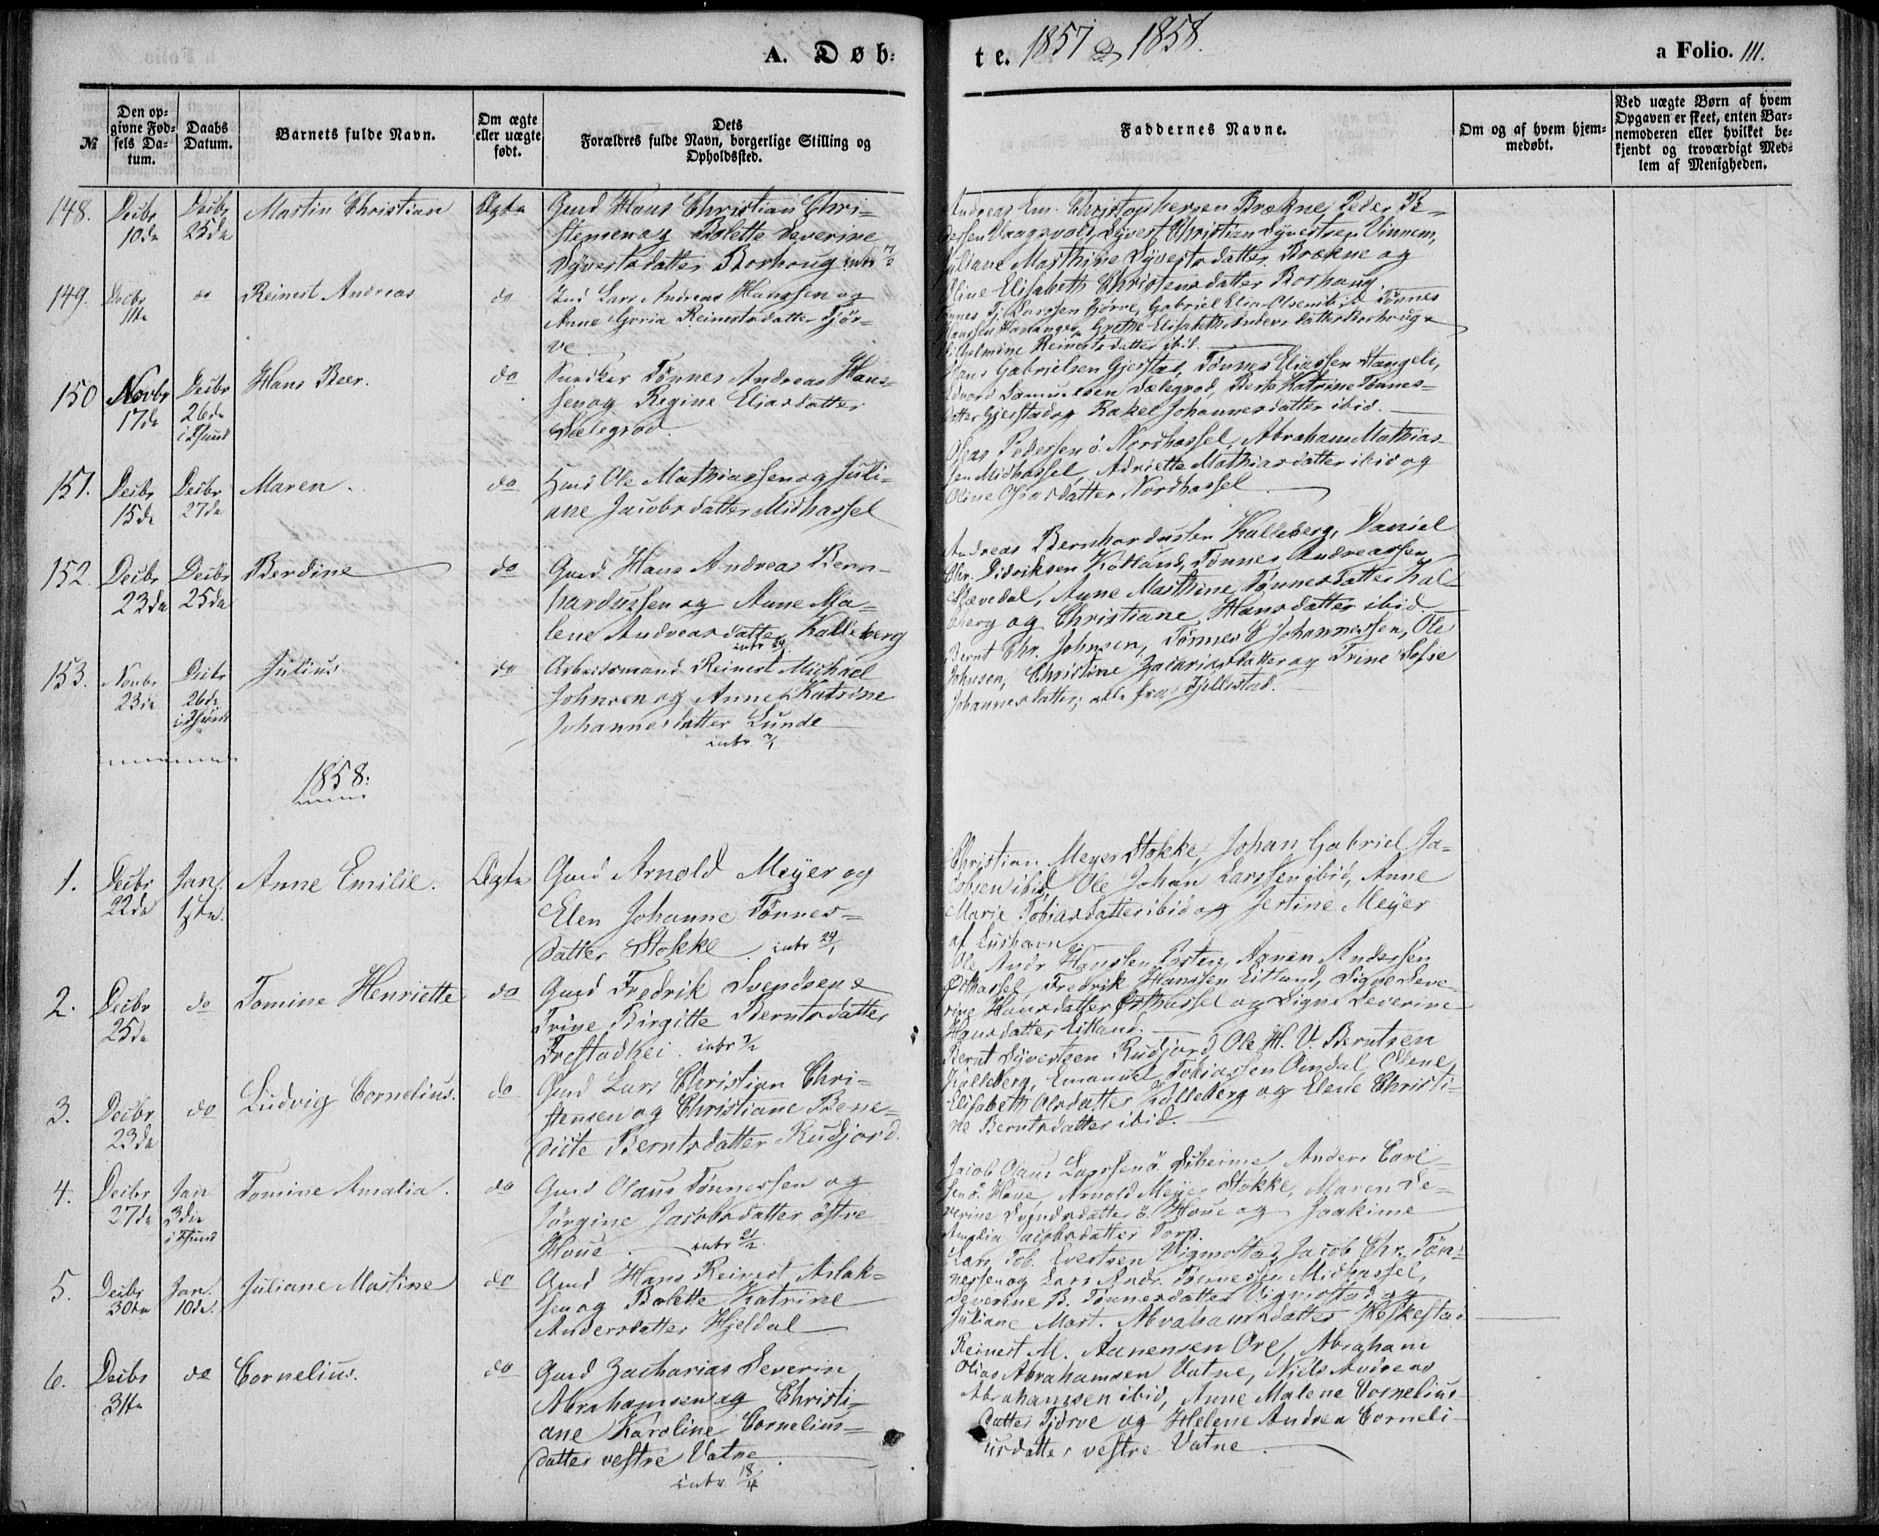 A. Døb:
te. 1857 & 1858.
a Folio. 111.
№
Den opgivne Fødsels Datum.
Daabs Datum.
Barnets fulde Navn.
Om ægte eller uægte født.
Dets Forældres fulde Navn, borgerlige Stilling og Opholdssted.
Faddernes Navne.
Om og af hvem hjemmedøbt.
Ved uægte Børn af hvem Opgaven er skeet, enten Barnemoderen eller hvilket bekjendt og troværdigt Medlem af Menigheden.
148. Decbr 10de Decbr 25de Martin Christian Ægte
Gmd Hans Christian Chri-
stensen og Bolette Severine
Syvertsdatter Borhoug
Andreas Em. Christophersen Brækne, Peder Pe-
dersen Vaagsvold, Syvert Christian Syvertsen Vinnem,
Juliane Marthine Syvertsdatter Brækne og
Oline Elisabeth Christensdatter Borhaug.
149. Decbr 11te do Reinert Andreas do
Gmd Lars Andreas Hanssen og
Anne Goria Reinertsdatter Tjør-
ve
Tønnes Tj. Larssen Tjørve, Gabriel Elias Olsen ibid Tønnes
Hanssen Hananger, Grethe Elisabeth Andersdatter Borhoug &
Wilhelmine Reinertsdatter ibid.
150 Novbr 17de Decbr 26de i Fsund Hans Beer. do
Snedker Tønnes Andreas Hans-
sen og Regine Eliasdatter
Sælegrod.
Hans Gabrielsen Gjerstad, Tønnes Eliassen Stangeli,
Edvard Samuelsen Sælegrod, Berte Katrine Tønnes-
datter Gjerstad og Rakel Johannesdatter ibid.
151. Decbr 15de Decbr 27de Maren. do
Gmd Ole Mathiassen og Juli-
ane Jacobsdatter Midhassel
Osias Pedersen ö. Nordhassel, Abraham Mathias-
sen Midhassel, Adriette Mathiasdatter ibid og
Oline Osiasdatter Nordhassel
152. Decbr 23de Decbr 25de Berdine do
Gmd Hans Andreas Bern-
hardussen og Anne Ma-
lene Andreasdatter Kalleberg
Andreas Bernhardussen Kalleberg, Daniel
Chr. Didriksen Kotland, Tønnes Andreassen
Skjævedal, Anne Marthine Tønnesdatter Kal-
leberg og Christiane Hansdatter ibid.
153. Novbr 23de Decbr 26de i Fsund Julius do
Arbeidsmand Reinert Michael
Johnsen og Anne Katrine
Johannesdatter Lunde
intr. 7/1
Bernt Chr. Johnsen, Tønnes E Johannessen, Ole
Johnsen, Christine Zachariasdatter og Trine Sofie
Johannesdatter, alle fra Fjellestad.
1858.
1. Decbr 22de Jan. 1ste. Anne Emilie. Ægte
Gmd Arnold Meyer og
Elen Johanne Tønnes-
datter Stokke. intr 24/1
Christian Meyer Stokke, Johan Gabriel Ja-
cobsen ibid, Ole Johan Larssen ibid, Anne
Marie Tobiasdatter ibid og Jertine Meyer
af Lushavn
2. Decbr 25de do Tomine Henriette do
Gmd Fredrik Svendsen &
Trine Birgitte Berntsdatter
Frestadhei. intr 7/2
Ole Andr Hanssen Østen, Aanen Andersen
Østhassel, Fredrik Hanssen Eitland, Signe Seve-
rine Hansdatter Østhassel og Signe Severine
Hansdatter Eitland.
3. Decbr 23de do Ludvig Cornelius. do
Gmd Lars Christian Chri-
stensen og Christiane Bene-
dicte Berntsdatter Rudjord.
Bernt Syvertsen Rudjord, Ole H. V. Berntsen
Kalleberg, Emanuel Tobiassen Omdal, Elene
Elisabeth Olsdatter Kalleberg og Elene Christi-
ne Berntsdatter ibid.
4. Decbr 27de Jan 3die i Fsund Tomine Amalia. do
Gmd Olaus Tønnessen og
Jørgine Jacobsdatter østre
Houe. intr 21/2.
Jacob Olaus Larssen ö. Dsheime Anders Carl-
sen ö. Houe, Arnold Meyer Stokke, Maren Se-
verine Svendsdatter ö. Houe og Joakime
Amalia Jacobsdatter Torp.
5. Decbr 30te Jan. 10de. Juliane Martine do
Gmd Hans Reinert Aslak-
sen og Bolette Katrine
Andersdatter Hjeldal
Lars Tob. Evertsen Vigmostad, Jacob Chr. Tøn-
nessen og Lars Andr. Tønnessen Midhassel,
Severine B. Tønnesdatter Vigmostad og
Juliane Mart. Abrahamsdatter Heskestad.
6. Decbr 31te do Cornelius. do
Gmd Zacharias Severin
Abrahamsen og Christi-
ane Karoline Cornelius-
datter vestre Vatne.
intr 18/4
Reinert M. Aanensen Ore, Abraham
Olias Abrahamsen Vatne, Niels Andreas
Abrahamsen ibid, Anne Malene Cornelius
datter Tjørve og Helene Andrea Corneli-
usdatter vestre Vatne.